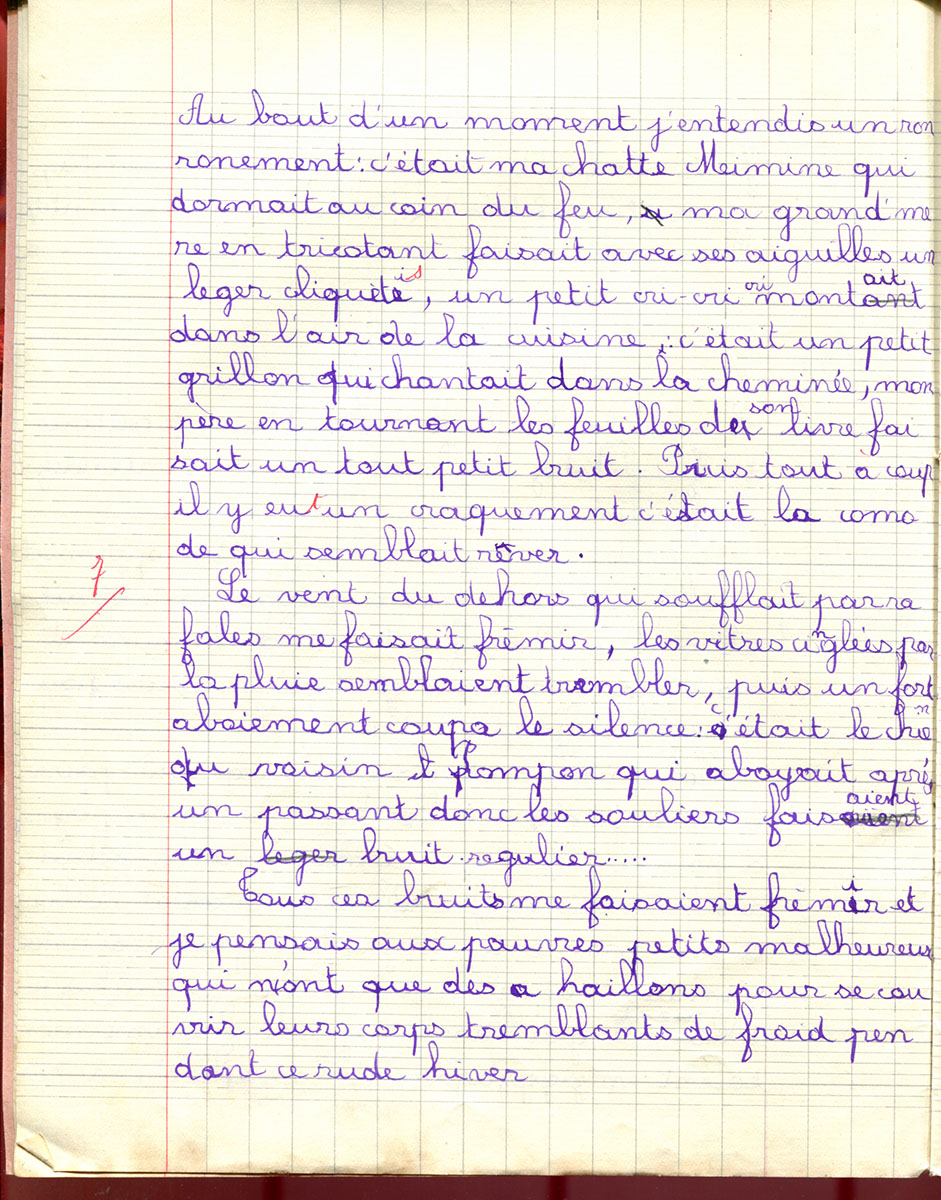 Au bout d'un moment j'entendis un ron
ronement : c'était ma chatte Meimine qui
dormait au coin du feu, ma grand'me
re en tricotant faisait avec ses aiguilles un
leger cliquetis, un petit cri-cri montait
dans l'air de la cuisine, : c'était un petit
grillon qui chantait dans la cheminée, mon
père en tournant les feuilles de son livre fai
sait un tout petit bruit. Puis tout à coup
il y eut un craquement c'était la como
de qui semblait rêver.
7
Le vent du dehors qui soufflait par ra
fales me faisait frêmir, les vitres cinglées par
la pluie semblaient trembler, puis un fort
aboiement coupa le silence : c'était le chien
du voisin Pompon qui aboyait après
un passant donc les souliers faisaient
un leger bruit regulier.....
Tous ces bruits me faisaient frèmir et
je pensais aux pauvres petits malheureux
qui n'ont que des haillons pour se cou
vrir leurs corps tremblants de froid pen
dant ce rude hiver